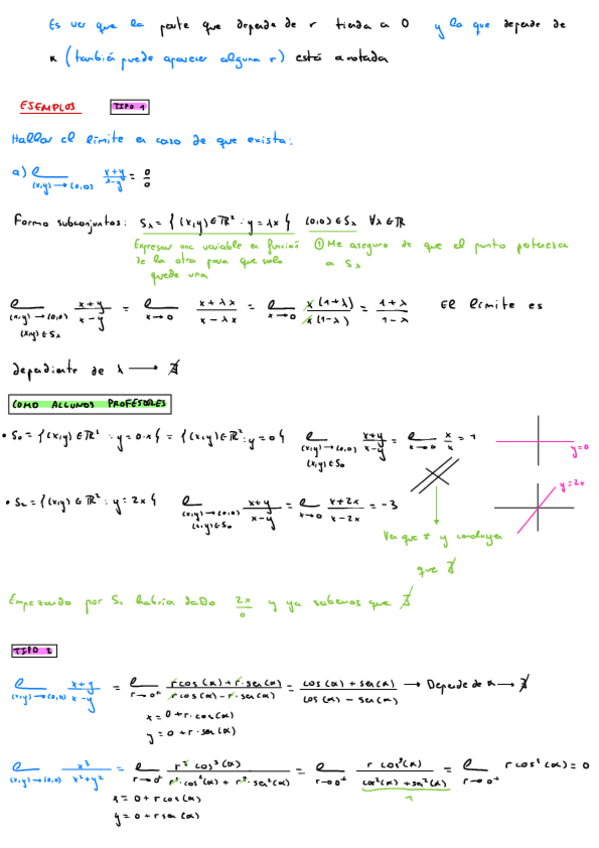 Es ver que la parte que depende de r tienda a 0 y lo que depende de
α (también puede aparecer alguna r) está acotada
EJEMPLOS TIPO 1
Hallar el límite en caso de que exista:
a) l (x,y)→(0,0) x+y/x-y = 0/0
Formo subconjuntos: Sλ = {(x,y) ∈ ℝ² : y = λx} (0,0) ∈ Sλ ∀λ ∈ ℝ
Expresar una variable en función ① Me aseguro de que el punto pertenezca
de la otra para que solo a Sλ
quede una
l (x,y)→(0,0) (x,y)∈Sλ x+y/x-y = l x→0 x+λx/x-λx = l x→0 x(1+λ)/x(1-λ) = 1+λ/1-λ El límite es
dependiente de λ → ∄
COMO ALGUNOS PROFESORES
• S₀ = {(x,y) ∈ ℝ² : y = 0·x} = {(x,y) ∈ ℝ² : y = 0} l (x,y)→(0,0) (x,y)∈S₀ x+y/x-y = l x→0 x/x = 1 y=0
• S₂ = {(x,y) ∈ ℝ² : y = 2x} l (x,y)→(0,0) (x,y)∈S₀ x+y/x-y = l x→0 x+2x/x-2x = -3 y=2x
Ves que ≠ y concluyes
que ∄
Empezando por S₁ habría dado 2x/0 y ya sabemos que ∄
TIPO 2
l (x,y)→(0,0) x+y/x-y = l r→0⁺ r cos(α) + r·sen(α)/r cos(α) - r·sen(α) = cos(α) + sen(α)/cos(α) - sen(α) → Depende de α → ∄
x = 0 + r·cos(α)
y = 0 + r·sen(α)
l (x,y)→(0,0) x³/x²+y² = l r→0⁺ r³ cos³(α)/r²·cos²(α) + r²·sen²(α) = l r→0⁺ r cos³(α)/cos²(α) + sen²(α) = l r→0⁺ r cos³(α) = 0
x = 0 + r cos(α) 1
y = 0 + r sen(α)